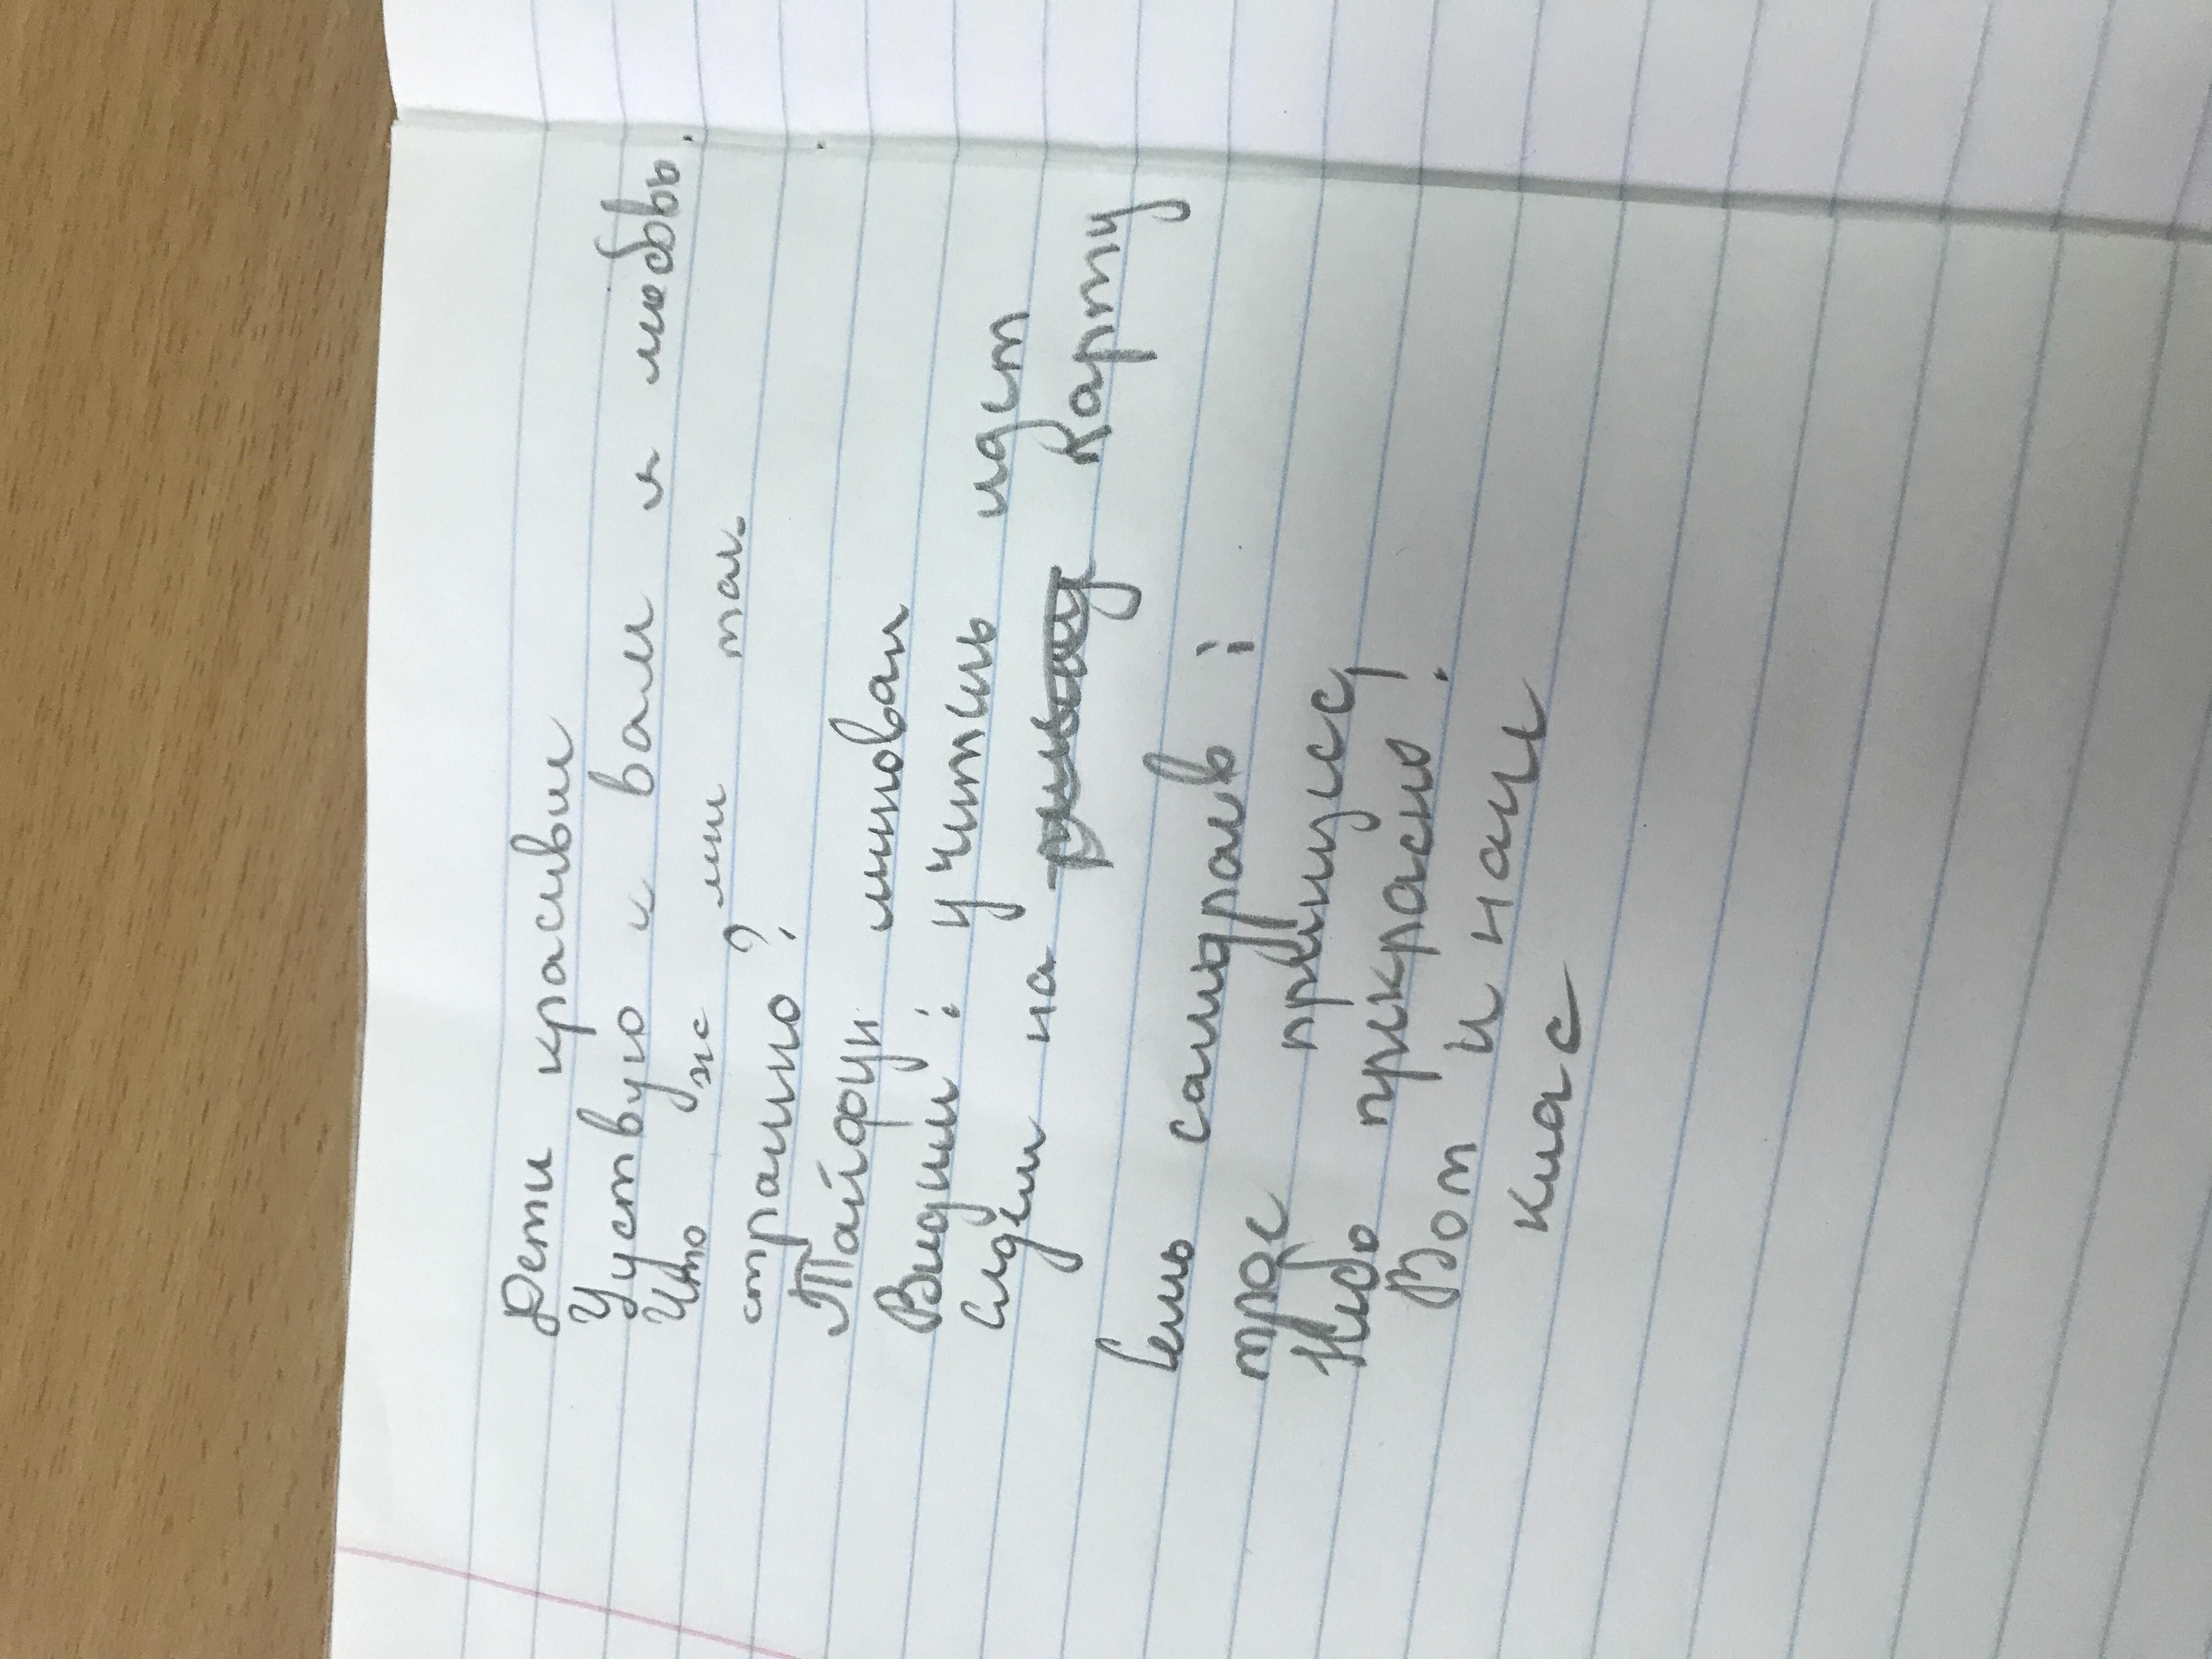 Дети красивии
Чуствую к вами и любовь.
Что же мне так
странно?
Тайфун миновал
Видиш: учитель идет
Сидел на Карту
Семь самураев;
трое принцесс,
Небо прикрасно!
Вот и наш
клас